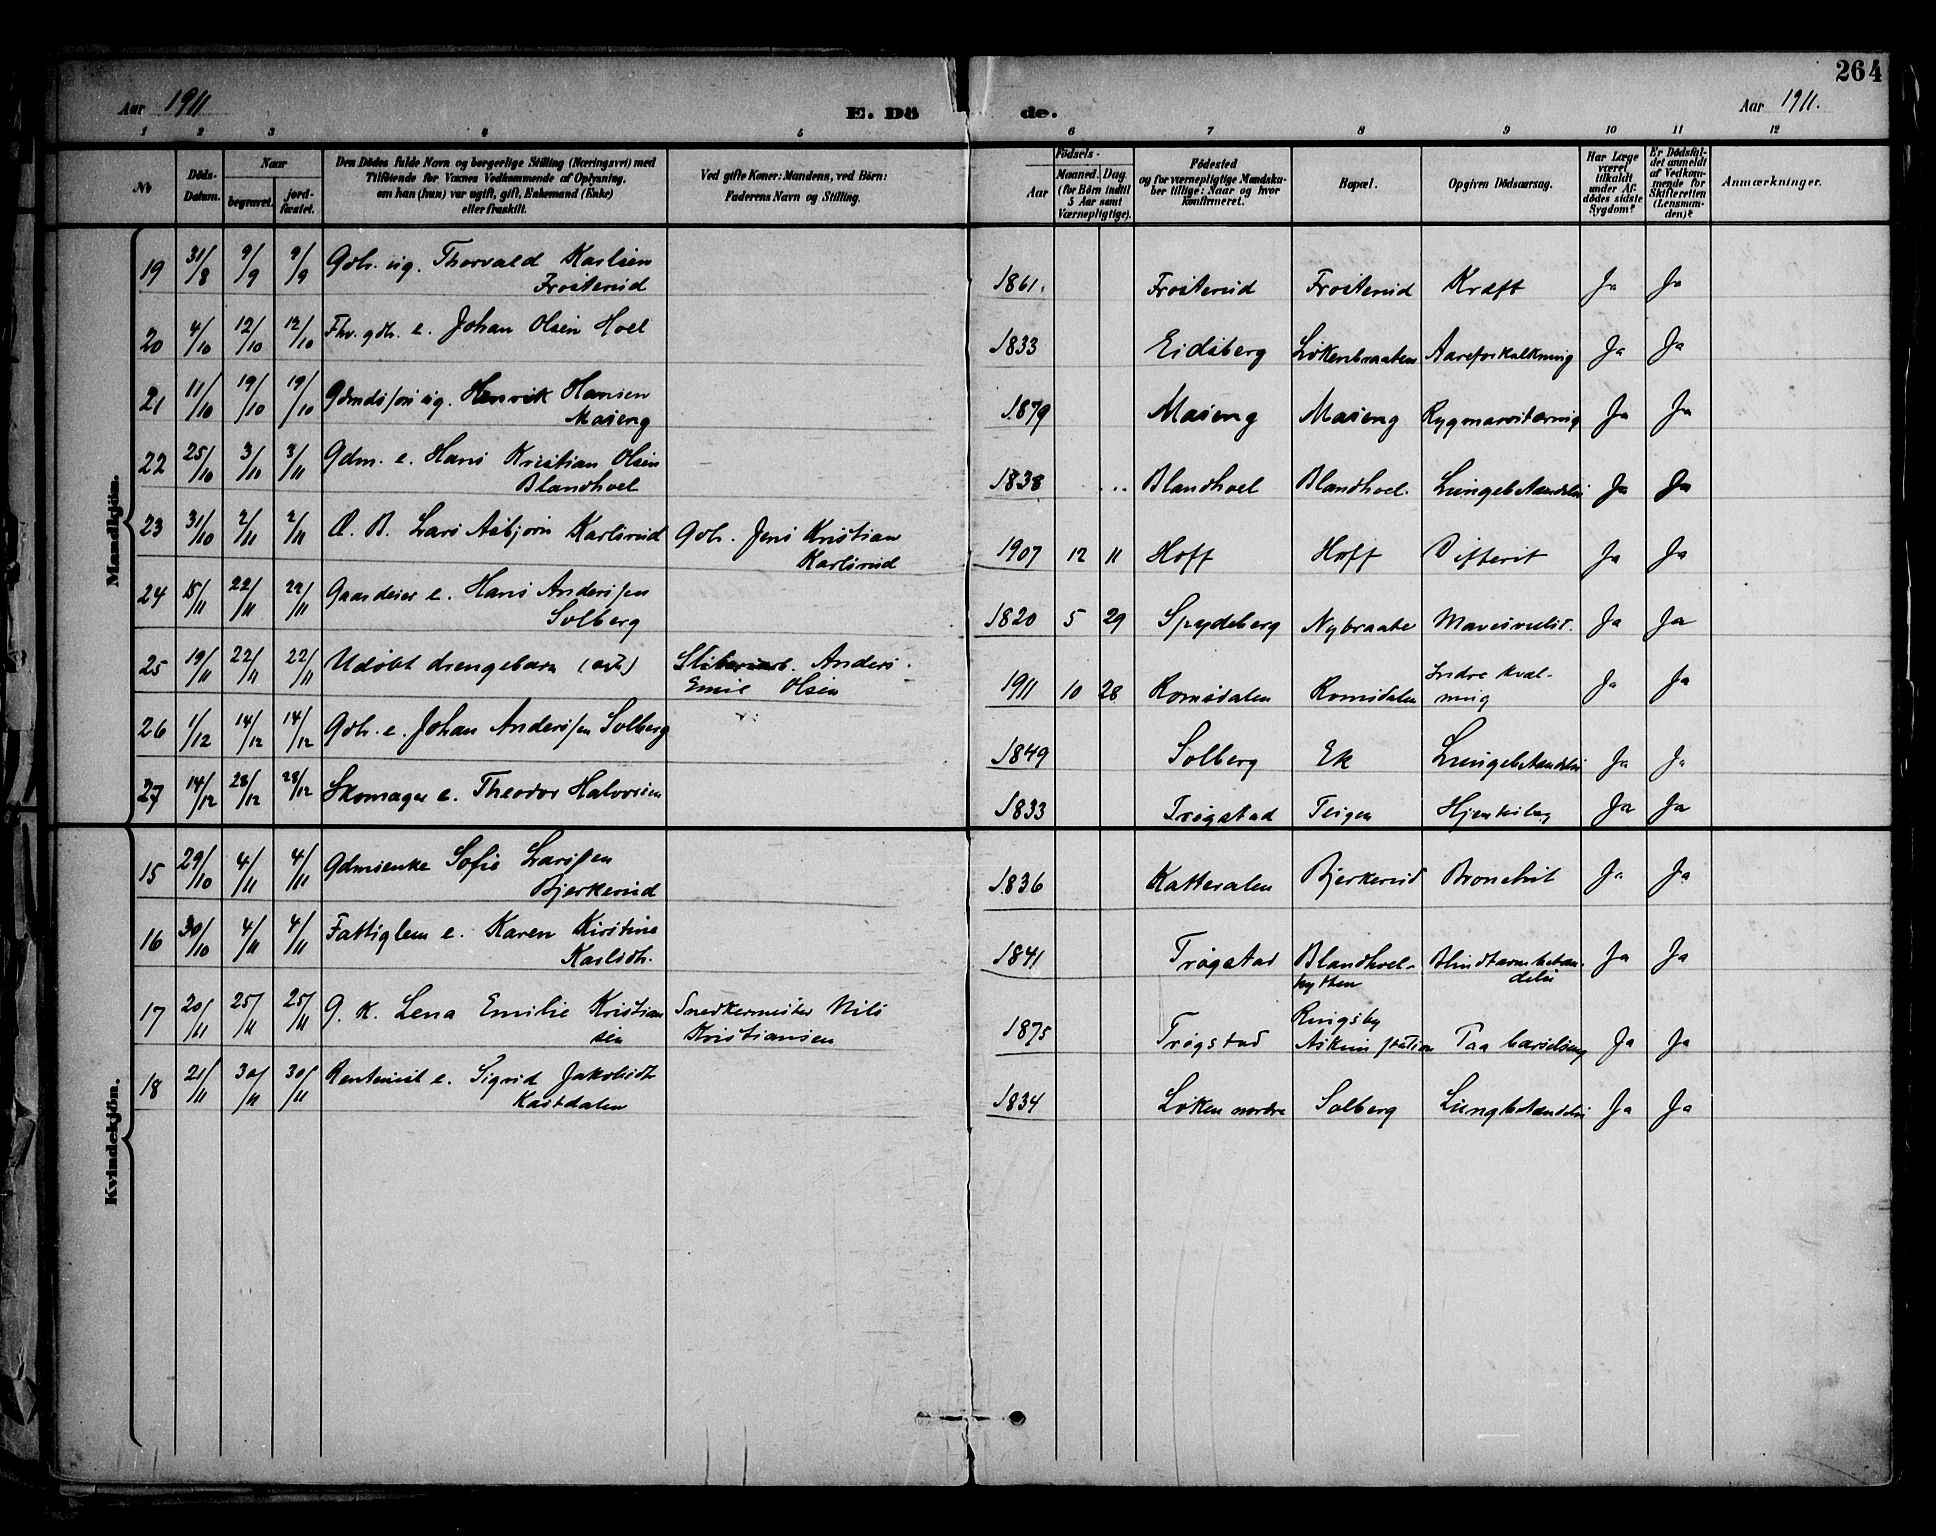 264
Aar 1911
E. Dö
de.
Aar 1911.
1 2 3 4 5 6 7 8 9 10 11 12
No
Döds-Datum.
Naar
begravet.
jord-fæstet.
Den Dödes fulde Navn og borgerlige Stilling (Næringsvei) med
Tilföiende for Voxnes Vedkommende af Oplysning,
om han (hun) var ugift, gift, Enkemand (Enke)
eller fraskilt.
Ved gifte Koner: Mandens, ved Börn:
Faderens Navn og Stilling.
Födsels-
Aar
Maaned. Dag.
(for Börn indtil
5 Aar samt
Værnepligtige).
Födested
og for værnepligtige Mandska-
ber tillige: Naar og hvor
konfirmeret.
Bopæl.
Opgiven Dödsaarsag.
Har Læge
været
tilkaldt
under Af-
dödes sidste
Sygdom?
Er Dödsfal-
det anmeldt
af Vedkom-
mende for
Skifteretten
(Lensman-
den)?
Anmærkninger.
Mandkjön.
19 31/8 9/9 9/9 Gdbr. ug. Thorvald Karlsen
Frosterud 1861. Frosterud Frosterud Kræft Ja Ja
20 4/10 12/10 12/10 Fhv. gdbr. e. Johan Olsen Hoel 1833 Eidsberg Løkenbraaten Aareforkalkning Ja Ja
21 11/10 19/10 19/10 Gdmdssøn ug. Henrik Hansen
Maseng 1879 Maseng Maseng Rygmarvstæring Ja Ja
22 25/10 3/10 3/11 Gdm. e. Hans Kristian Olsen
Blandhoel 1838 Blandhoel Blandhoel. Lungebetændelse Ja Ja
23 31/10 2/11 2/11 Æ. B. Lars Asbjørn Karlsrud Gdb. Jens Kristian
Karlsrud 1907 12 11 Hoff Hoff Difterit Ja Ja
24 15/11 22/11 22/11 Gaardeier e. Hans Anderssen
Solberg 1820 5 29 Spydeberg Nybraate Mavesvulst. Ja Ja
25 19/11 22/11 22/11 Udøbt drengebarn Anders
Emil Olsen 1911 10 28 Romsdalen Romsdalen Indre kvæl-
ning Ja Ja
26 1/12 14/12 14/12 Gdb. e. Johan Anderssen Solberg 1849 Solberg Ek Lungebetændelse Ja Ja
27 14/12 28/12 28/12 Skomager e. Theodor Halvorsen 1833 Trøgstad Teigen Ja Ja
Kvindekjön.
15 29/10 4/11 4/11 Gdmsenke Sofie Larssen
Bjerkerud 1836 Katteralen Bjerkerud Bronchit Ja Ja
16 30/10 4/11 4/11 Fattiglem e. Karen Kirstine
Karlsdtr. 1841 Trøgstad Blandhoel-
hytten Blindtarmbetæn-
delse Ja Ja
17 20/11 25/11 25/11 G. K. Lena Emilie Kristian
sen Snedkermester Nils
Kristiansen 1875 Trøgstad Ringsby
Askim station Paa barselseng Ja Ja
18 21/11 30/11 30/11 Rentenist e. Sigrid Jakobsdtr
Kastdalen 1834 Løken nordre Solberg Lungbetændelse Ja Ja